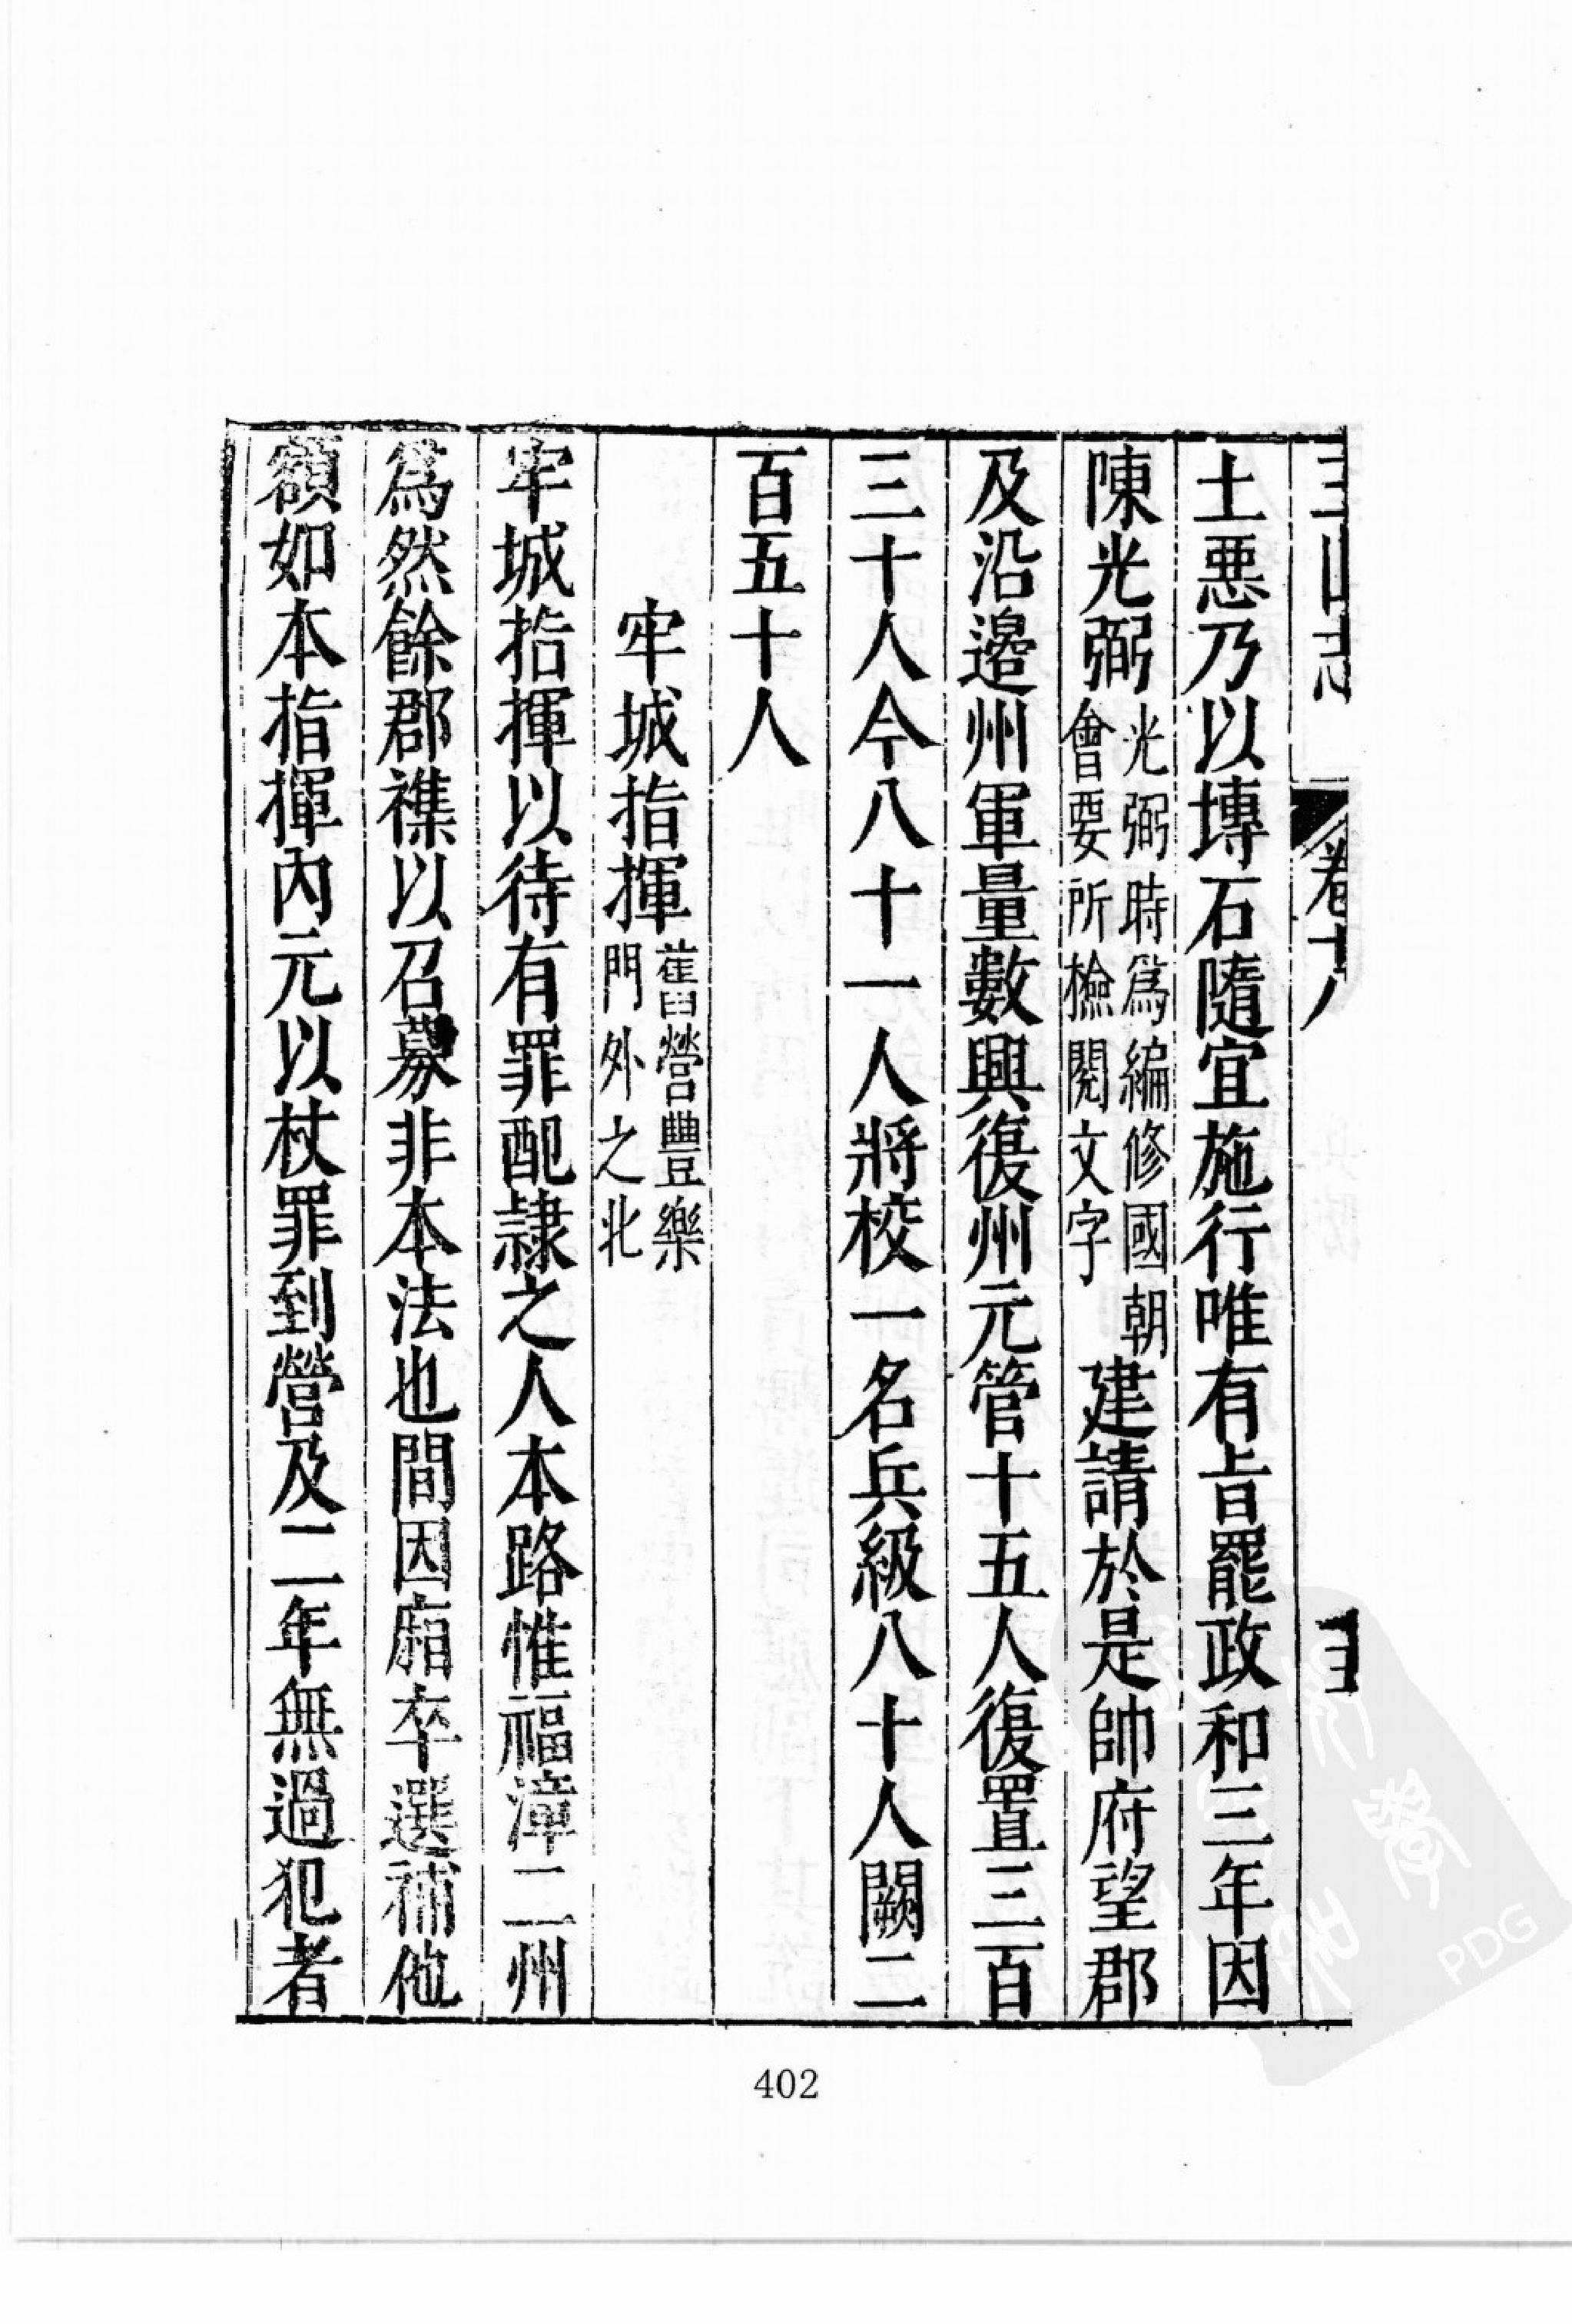 三山志 卷十八
土惡乃以塼石隨宜施行唯有旨罷政和三年因
陳光弼光弼時爲編修國朝會要所檢閱文字建請於是帥府望郡
及沿邉州軍量數興復州元管十五人復置三百
三十人今八十一人將校一名兵級八十人闕二
百五十人
牢城指揮舊營豐樂門外之北
牢城指揮以待有罪配隷之人本路惟福漳二州
爲然餘郡襍以召募非本法也間因廂卒選補他
額如本指揮內元以杖罪到營及二年無過犯者
402
PDG